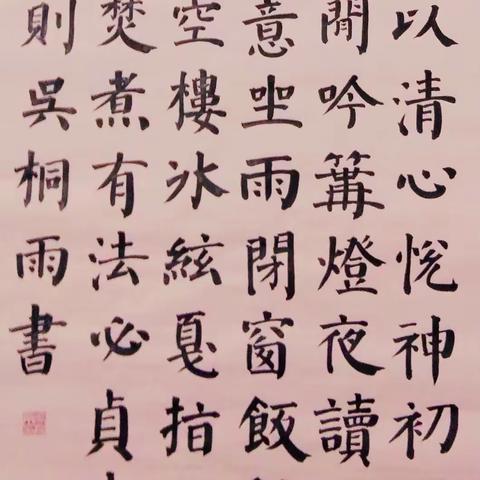 以清心悅神初
閒吟篝燈夜讀
意坐雨閉窗飯
空樓冰絃戛指
焚煮有法必貞
則吳桐雨書